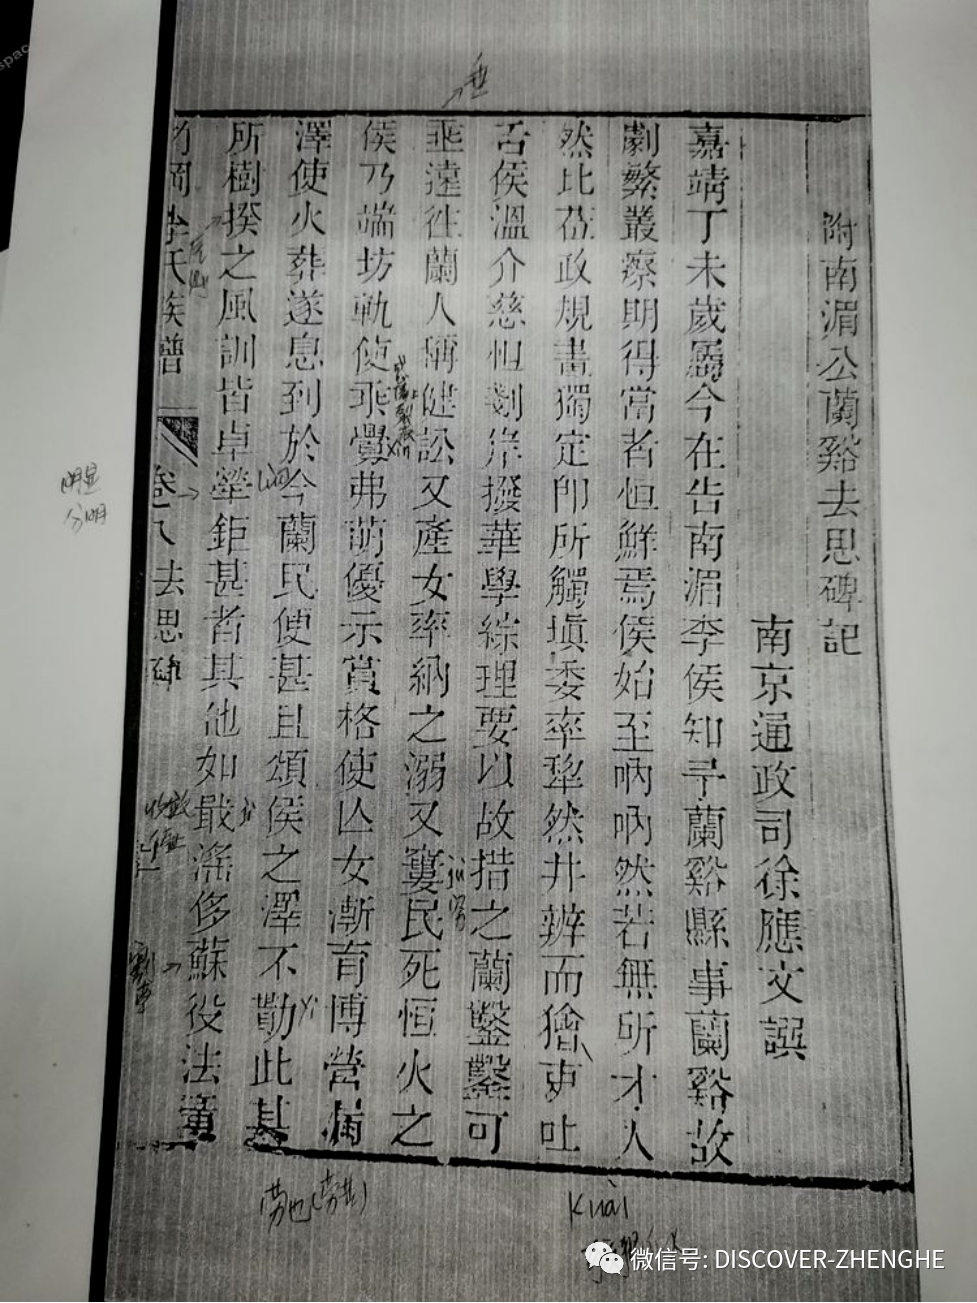 附南湄公蘭谿去思碑記
南京通政司徐應文譔
嘉靖丁未歲屬今在告南湄李侯知予蘭谿縣事蘭谿故
劇繁叢瘵期得當者恒鮮焉侯始至吶吶然若無所才人
然比蒞政規畫獨定卽所觸塡委率犂然井辨而獪吏吐
舌侯溫介慈怛剗岸撥華學綜理要以故措之蘭鑿鑿可
乖遠徃蘭人稱健訟又產女率納之溺又窶民死恒火之
侯乃端坊軌使乖釁弗萌優示賞格使亾女漸育博營
澤使火葬遂息到於今蘭民使甚且頌侯之澤不勩此其
所樹揆之風訓皆卓犖鉅甚者其他如戢滛侈蘇役法童
李氏族譜
卷八
去思碑
垂
明显
分明
yi
劳也
Kuài
微信号: DISCOVER-ZHENGHE